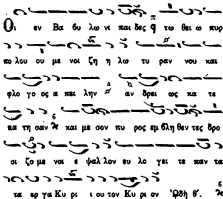 Οι εν Βα βυ λω νι παι δες τω θει ω πυρ
πο λου με νοι ζη η λω τυ ραν νου και
φλο γος α πει λην αν δρει ως κα τε
πα τη σαν και με σον πυ ρος εμ βλη θεν τες δρο
σι ζο με νοι ε ψαλ λον ευ λο γει τε παν τα
τα ερ γα Κυ ρι ι ου τον Κυ ρι ον Ὠδὴ θ'.